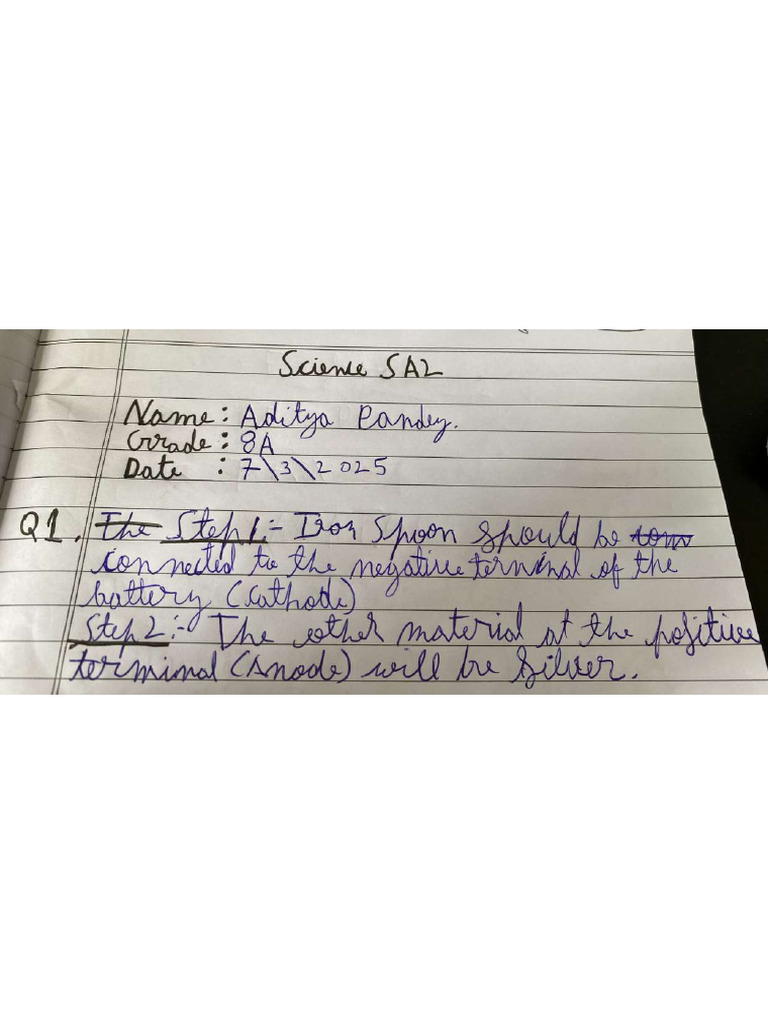 Science SA2
Name: Aditya Pandey.
Grade: 8A
Date : 7\3\2025
Q1. The Step 1:- Iron Spoon should be conn
connected to the negative terminal of the
battery (Cathode)
Step 2:- The other material at the positive
terminal (Anode) will be Silver.